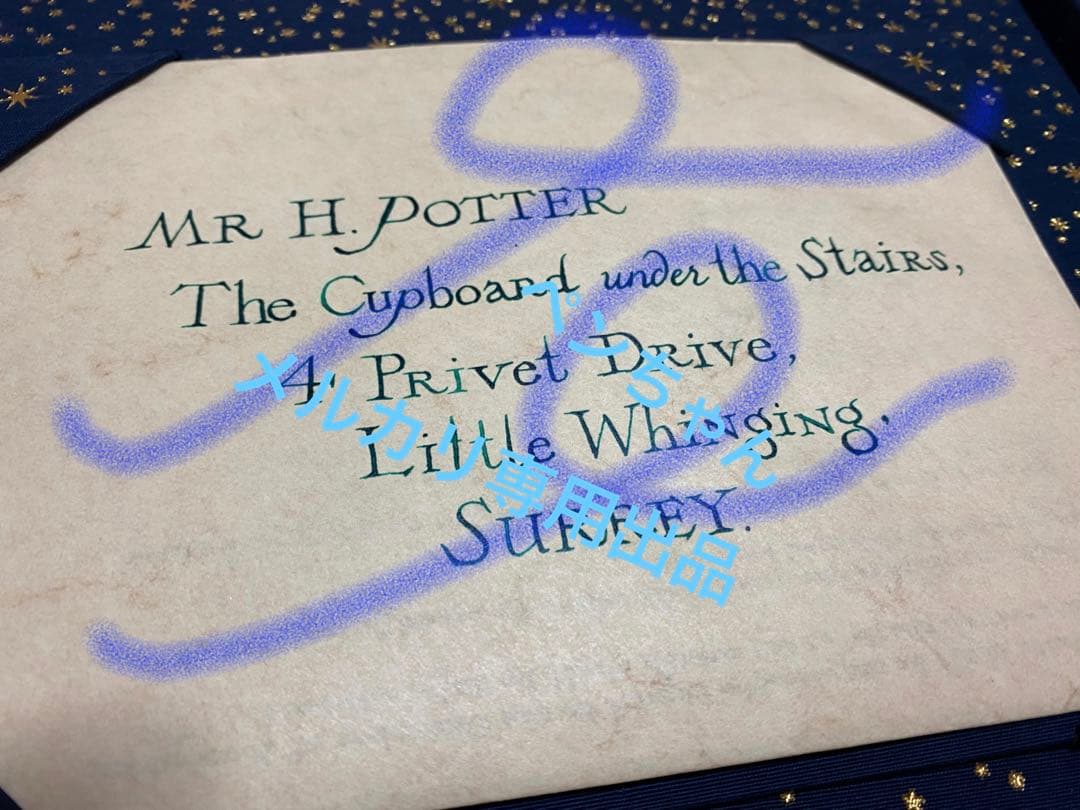 Mr H. Potter
The Cupboard under the Stairs,
4, Privet Drive,
Little Whinging,
Surrey.
プンちゃん
メルカリ専用出品